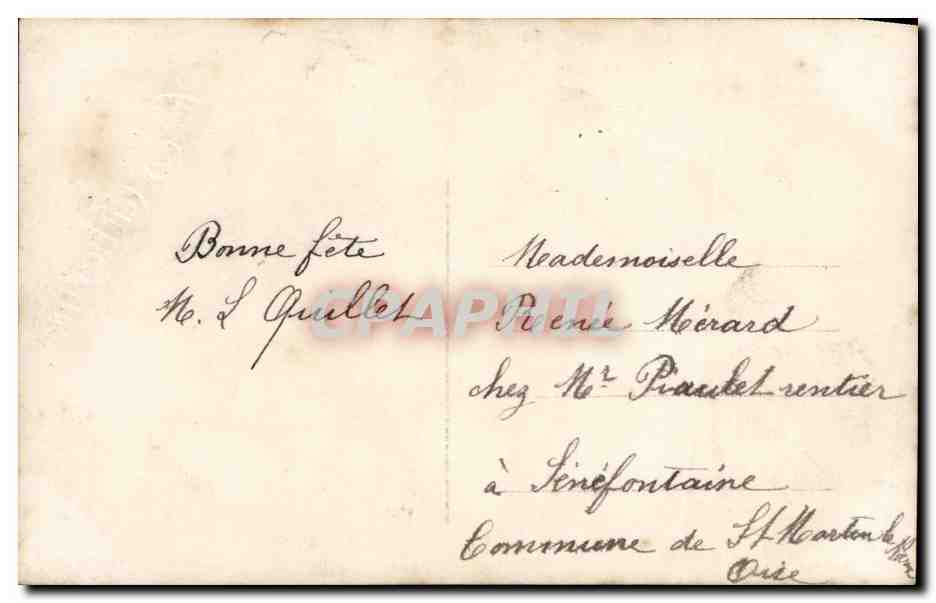 Bonne fête
M. L Quillet
Mademoiselle
Renée Mérard
chez Mr Piaulet rentier
à Sénéfontaine
Commune de St Martin le
Oise
CPAPHIL